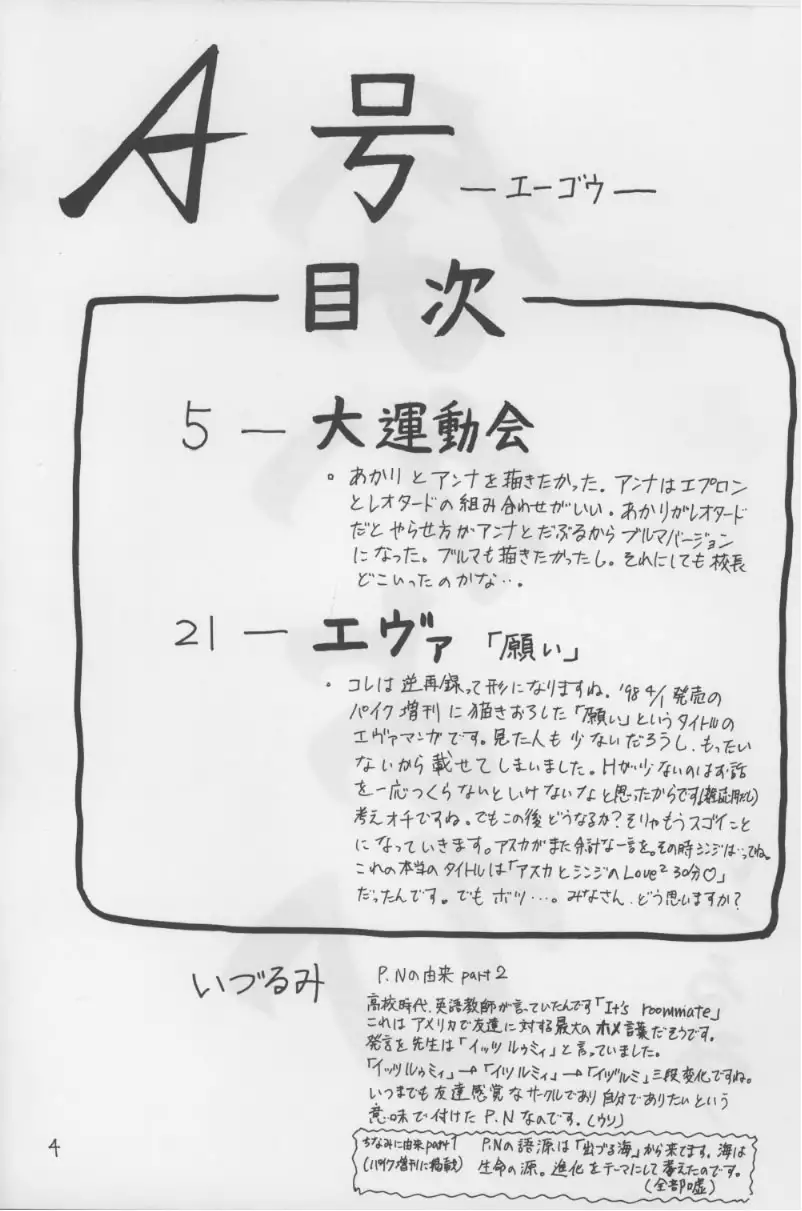 A号 ―エーゴウ―
目次
5 ― 大運動会
。あかりとアンナを描きたかった。アンナはエプロン
とレオタードの組み合わせがいい。あかりがレオタード
だとやらせ方がアンナとだぶるからブルマバージョン
になった。ブルマも描きたかったし。それにしても校長
どこいったのかな…。
21 ― エヴァ 「願い」
・コレは逆再録って形になりますね。'98 4/1発売の
パイク増刊に描きおろした「願い」というタイトルの
エヴァマンガです。見た人も少ないだろうし、もったい
ないから載せてしまいました。Hが少ないのはお話
を一応つくらないといけないなと思ったからです(雑誌用だし)
考えオチですね。でもこの後どうなるか?そりゃもうスゴイこと
になっていきます。アスカがまた余計な一言を。その時シンジは…ってね。
これの本当のタイトルは「アスカとシンジのLove² 30分♡」
だったんです。でもボツ…。みなさん、どう思いますか?
いづるみ
P.Nの由来 part 2
高校時代、英語教師が言っていたんです「It's roommate」
これはアメリカで友達に対する最大のホメ言葉だそうです。
発言を先生は「イッツ ルゥミィ」と言っていました。
「イッツルゥミィ」→「イツルミィ」→「イヅルミ」三段変化ですね。
いつまでも友達感覚なサークルであり自分でありたいという
意味で付けたP.Nなのです。(ウソ)
ちなみに由来part1
(パイク増刊に掲載)
P.Nの語源は「出づる海」から来てます。海は
生命の源。進化をテーマにして考えたのです。
(全部嘘)
4